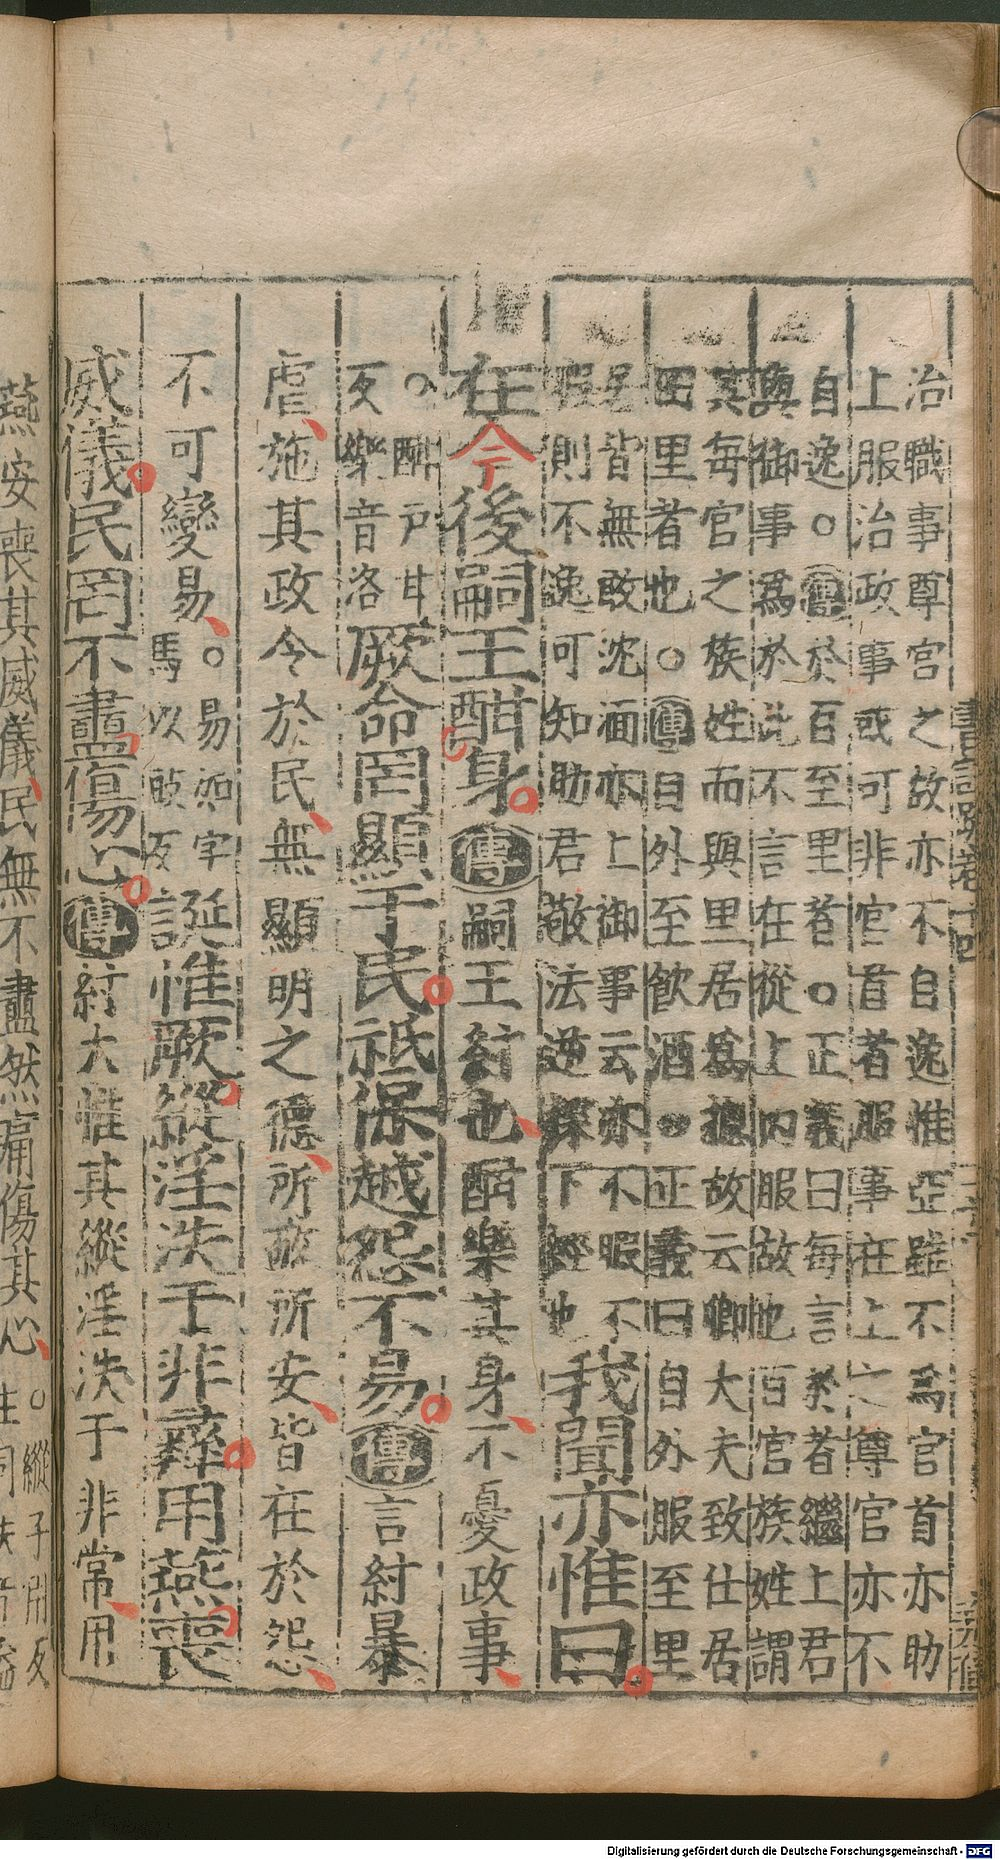 治職事尊官之故亦不自逸惟亞雖不爲官首亦助
上服治政事或可非官首者服事在上之尊官亦不
自逸○傳於百至里者○正義曰每言於者繼上君
與御事爲於此不言在從上內服故也百官族姓謂
其每官之族姓而與里居爲摠故云卿大夫致仕居
田里者也○傳自外至飲酒○正義曰自外服至里
居皆無敢沈湎亦上御事云亦不暇不
暇則不逸可知助君敬法逆探下經也
我聞亦惟曰
在今後嗣王酣身傳嗣王紂也酣樂其身不憂政事
○酣戸甘
反樂音洛
厥命罔顯于民祗保越怨不易傳言紂暴
虐施其政令於民無顯明之德所敬所安皆在於怨
不可變易
○易如字
馬以豉反
誕惟厥縱淫泆于非彝用燕喪
威儀民罔不衋傷心傳紂大惟其縱淫泆于非常用
燕安喪其威儀民無不衋然痛傷其心
○縱子用反
Digitalisierung gefördert durch die Deutsche Forschungsgemeinschaft - DFG